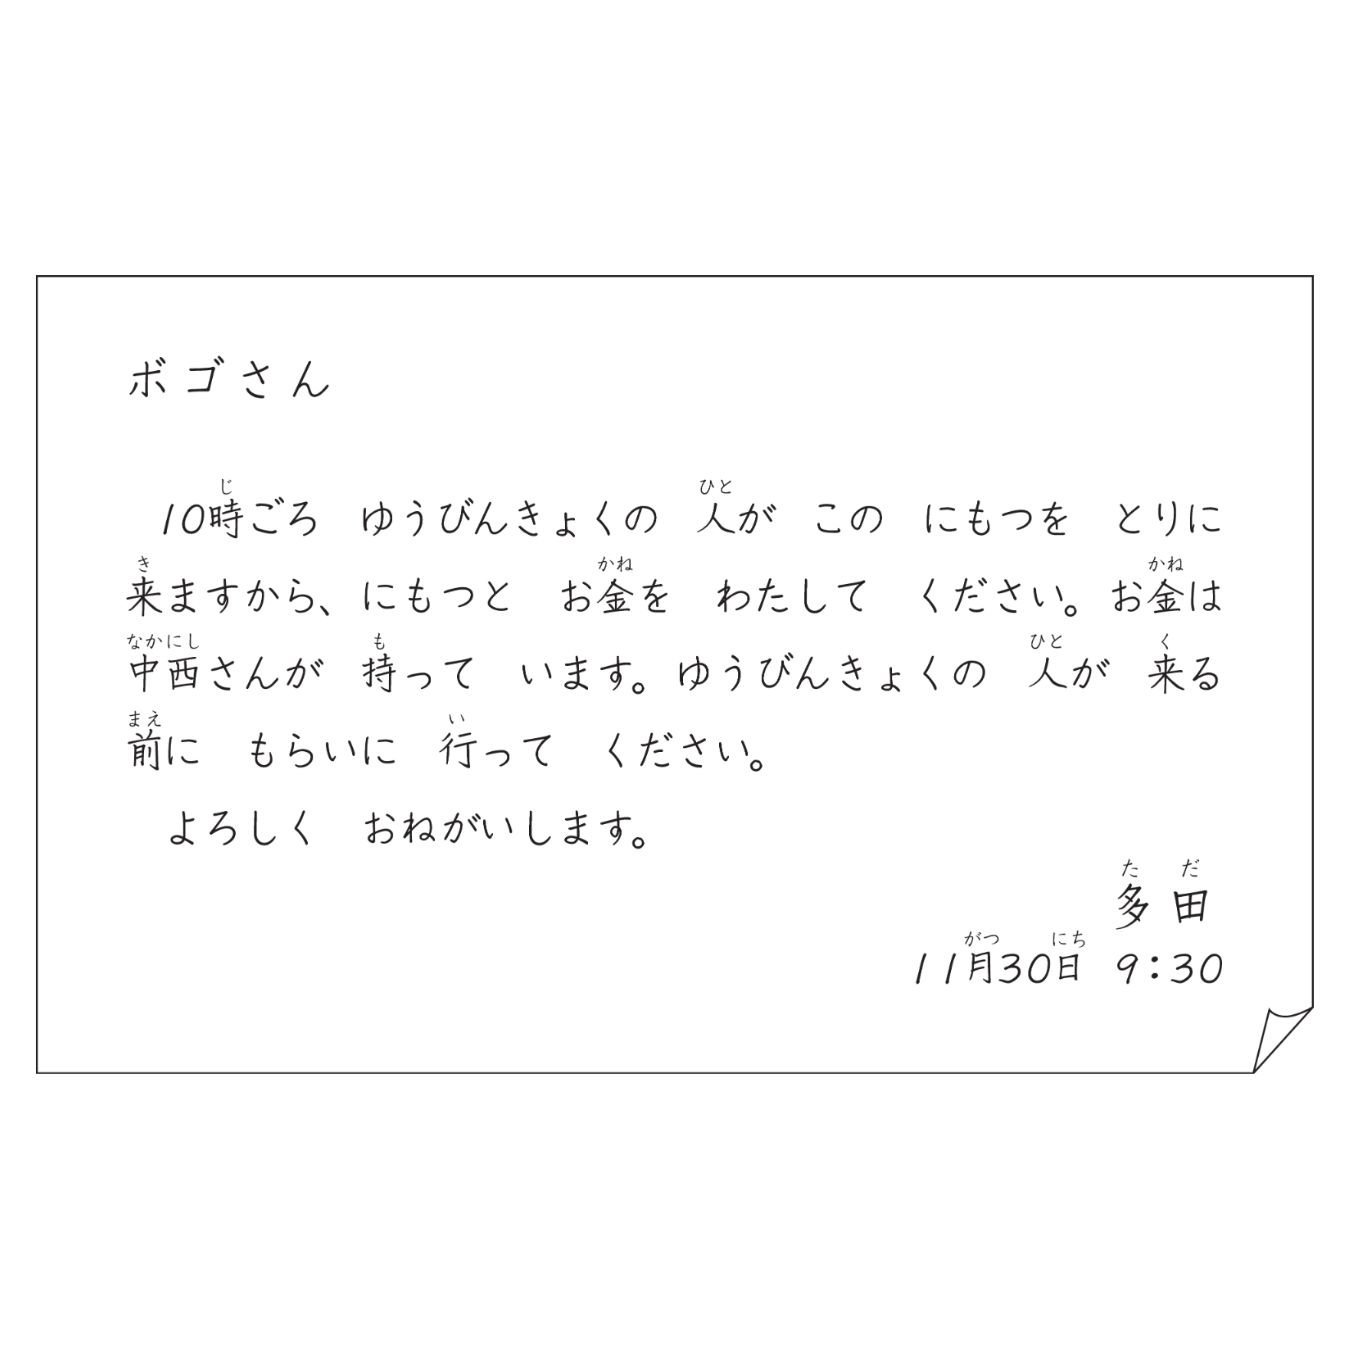 ボゴさん
10時ごろ ゆうびんきょくの 人が この にもつを とりに
来ますから、にもつと お金を わたして ください。お金は
中西さんが 持って います。ゆうびんきょくの 人が 来る
前に もらいに 行って ください。
よろしく おねがいします。
多田
11月30日 9:30